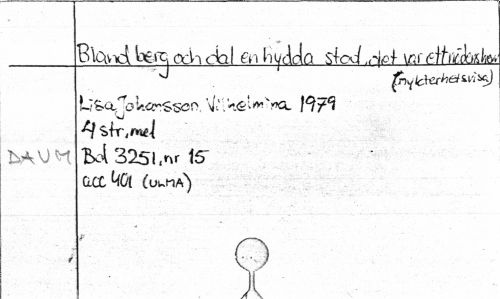 Bland berg och dal en hydda stod, det var ett
(nykterhetsvisa)
Lisa Johansson, Vilhelmina 1979
4 str, mel
DAUM Bd 3251, nr 15
acc 401 (ULMA)